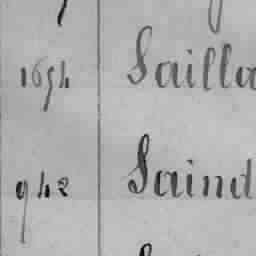 1654 Sailla
942 Saind